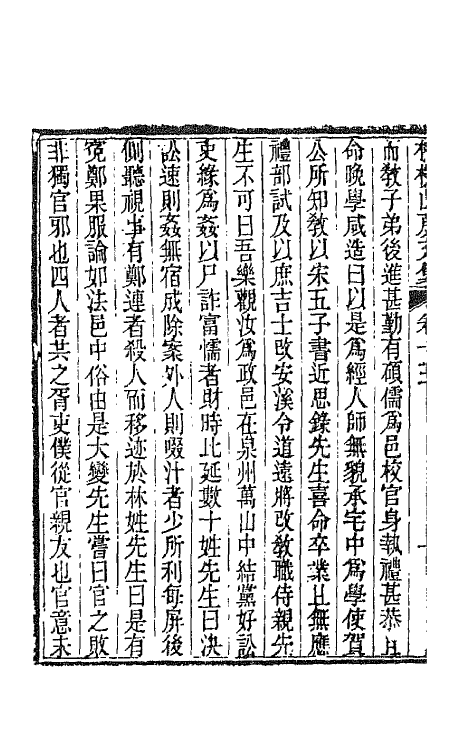 樓山房文集 卷十三
而敎子弟後進甚勤有碩儒爲邑校官身執禮甚恭且
命晚學咸造曰以是爲經人師無貌承宅中爲學使賀
公所知敎以宋五子書近思錄先生喜命卒業且無應
禮部試及以庶吉士改安溪令道遠將改敎職侍親先
生不可曰吾樂觀汝爲政邑在泉州萬山中結黨好訟
吏緣爲姦以尸詐富懦者財時比延數十姓先生曰決
訟速則姦無宿成除案外人則啜汁者少所利每屏後
側聽視事有鄭連者殺人而移迹於林姓先生曰是有
寃鄭果服論如法邑中俗由是大變先生嘗曰官之敗
非獨官邪也四人者共之胥吏僕從官親友也官意未